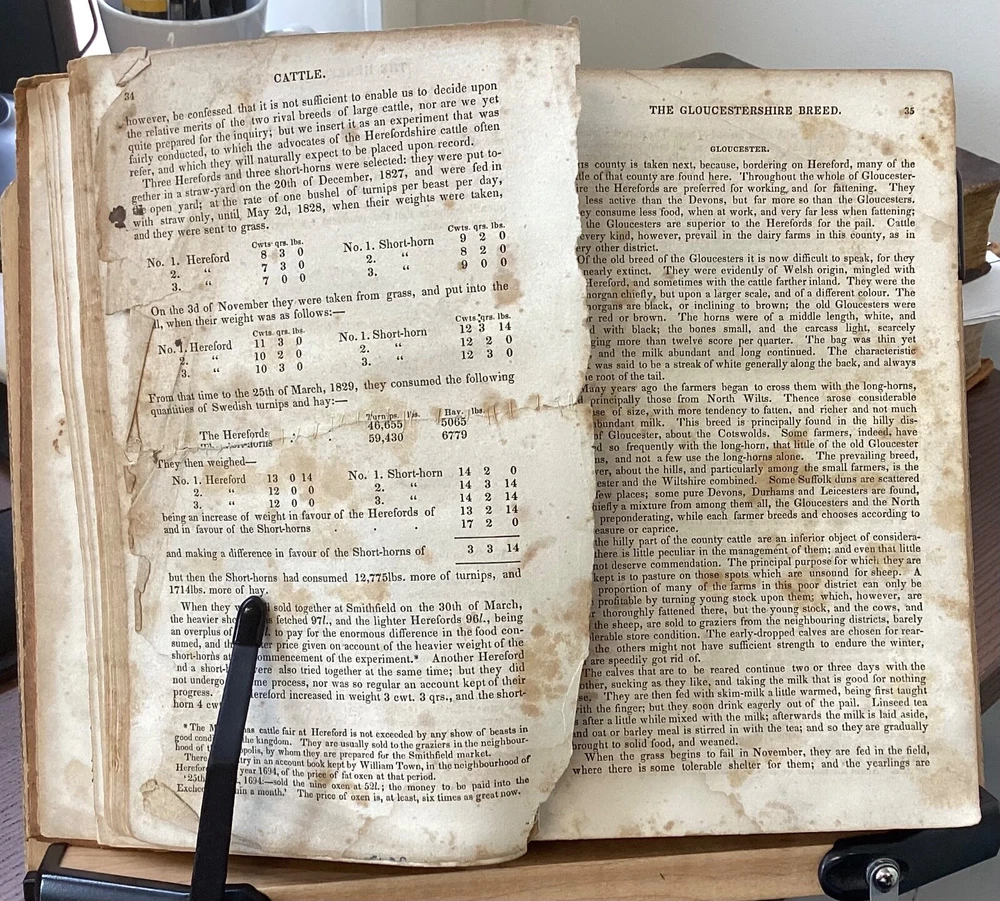 34
CATTLE.
however, be confessed, that it is not sufficient to enable us to decide upon
the relative merits of the two rival breeds of large cattle, nor are we yet
quite prepared for the inquiry; but we insert it as an experiment that was
fairly conducted, to which the advocates of the Herefordshire cattle often
refer, and which they will naturally expect to be placed upon record.
Three Herefords and three short-horns were selected: they were put to-
gether in a straw-yard on the 20th of December, 1827, and were fed in
open yard; at the rate of one bushel of turnips per beast per day,
with straw only, until May 2d, 1828, when their weights were taken,
and they were sent to grass.
Cwts qrs. lbs. Cwts. qrs. lbs.
No. 1. Hereford 8 3 0 No. 1. Short-horn 9 2 0
2. “ 7 3 0 2. “ 8 2 0
3. “ 7 0 0 3. “ 9 0 0
On the 3d of November they were taken from grass, and put into the
ll, when their weight was as follows:—
Cwts. qrs. lbs. Cwts. qrs. lbs.
No. 1. Hereford 11 3 0 No. 1. Short-horn 12 3 14
2. “ 10 2 0 2. “ 12 2 0
3. “ 10 3 0 3. “ 12 3 0
From that time to the 25th of March, 1829, they consumed the following
quantities of Swedish turnips and hay:—
Turnips. lbs. Hay. lbs.
The Herefords . . 46,655 5065
59,430 6779
They then weighed—
No. 1. Hereford 13 0 14 No. 1. Short-horn 14 2 0
2. “ 12 0 0 2. “ 14 3 14
3. “ 12 0 0 3. “ 14 2 14
being an increase of weight in favour of the Herefords of 13 2 14
and in favour of the Short-horns . . . 17 2 0
and making a difference in favour of the Short-horns of 3 3 14
but then the Short-horns had consumed 12,775lbs. more of turnips, and
1714lbs. more of hay.
When they sold together at Smithfield on the 30th of March,
the heavier fetched 97l., and the lighter Herefords 96l., being
an overplus of to pay for the enormous difference in the food con-
sumed, and price given on account of the heavier weight of the
short-horns at commencement of the experiment.* Another Hereford
nd a short- were also tried together at the same time; but they did
not undergo process, nor was so regular an account kept of their
progress. ereford increased in weight 3 cwt. 3 qrs., and the short-
horn 4 cwt
* The cattle fair at Hereford is not exceeded by any show of beasts in
good the kingdom. They are usually sold to the graziers in the neighbour-
hood of opolis, by whom they are prepared for the Smithfield market.
There in an account book kept by William Town, in the neighbourhood of
Hereford year 1694, of the price of fat oxen at that period.
'25th 1694:—sold the nine oxen at 52l.; the money to be paid into the
Exche in a month.' The price of oxen is, at least, six times as great now.
THE GLOUCESTERSHIRE BREED. 35
GLOUCESTER.
county is taken next, because, bordering on Hereford, many of the
of that county are found here. Throughout the whole of Gloucester-
the Herefords are preferred for working, and for fattening. They
less active than the Devons, but far more so than the Gloucesters.
ey consume less food, when at work, and very far less when fattening;
the Gloucesters are superior to the Herefords for the pail. Cattle
every kind, however, prevail in the dairy farms in this county, as in
ery other district.
Of the old breed of the Gloucesters it is now difficult to speak, for they
nearly extinct. They were evidently of Welsh origin, mingled with
Hereford, and sometimes with the cattle farther inland. They were the
morgan chiefly, but upon a larger scale, and of a different colour. The
morgans are black, or inclining to brown; the old Gloucesters were
red or brown. The horns were of a middle length, white, and
d with black; the bones small, and the carcass light, scarcely
ging more than twelve score per quarter. The bag was thin yet
and the milk abundant and long continued. The characteristic
was said to be a streak of white generally along the back, and always
e root of the tail.
Many years ago the farmers began to cross them with the long-horns,
principally those from North Wilts. Thence arose considerable
se of size, with more tendency to fatten, and richer and not much
abundant milk. This breed is principally found in the hilly dis-
of Gloucester, about the Cotswolds. Some farmers, indeed, have
d so frequently with the long-horn, that little of the old Gloucester
s, and not a few use the long-horns alone. The prevailing breed,
ver, about the hills, and particularly among the small farmers, is the
ester and the Wiltshire combined. Some Suffolk duns are scattered
few places; some pure Devons, Durhams and Leicesters are found,
hiefly a mixture from among them all, the Gloucesters and the North
preponderating, while each farmer breeds and chooses according to
easure or caprice.
the hilly part of the county cattle are an inferior object of considera-
there is little peculiar in the management of them; and even that little
not deserve commendation. The principal purpose for which they are
kept is to pasture on those spots which are unsound for sheep. A
proportion of many of the farms in this poor district can only be
profitable by turning young stock upon them; which, however, are
thoroughly fattened there, but the young stock, and the cows, and
the sheep, are sold to graziers from the neighbouring districts, barely
lerable store condition. The early-dropped calves are chosen for rear-
the others might not have sufficient strength to endure the winter,
are speedily got rid of.
The calves that are to be reared continue two or three days with the
other, sucking as they like, and taking the milk that is good for nothing
se. They are then fed with skim-milk a little warmed, being first taught
with the finger; but they soon drink eagerly out of the pail. Linseed tea
s after a little while mixed with the milk; afterwards the milk is laid aside,
and oat or barley meal is stirred in with the tea; and so they are gradually
brought to solid food, and weaned.
When the grass begins to fail in November, they are fed in the field,
where there is some tolerable shelter for them; and the yearlings are